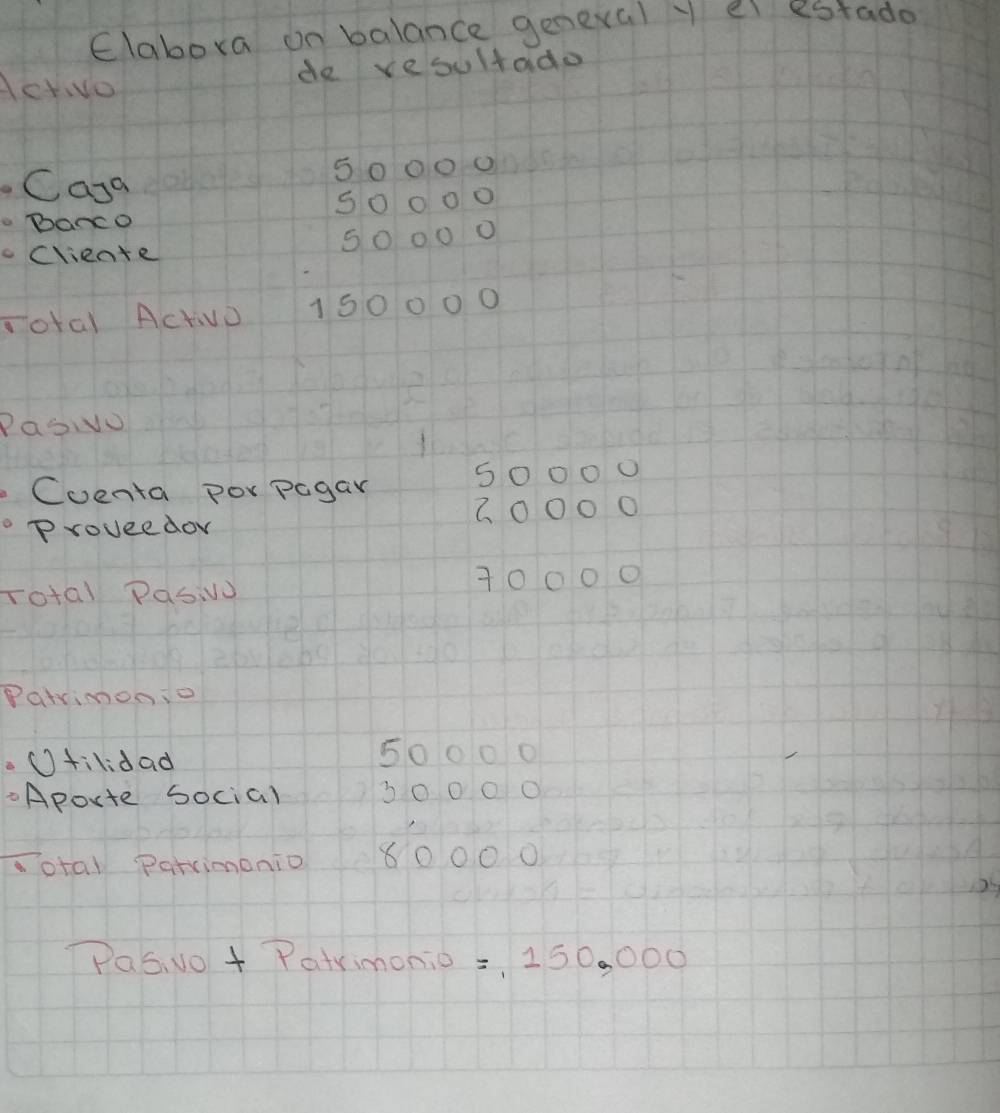 Elabora un balance general y el estado
de resultado
Activo
• Caja 50000
• Banco 50000
• Cliente 50000
Total Activo 150000
Pasivo
• Cuenta por pagar 50000
• Proveedor 20000
Total Pasivo 70000
Patrimonio
• Utilidad 50000
• Aporte Social 30000
Total Patrimonio 80000
Pasivo + Patrimonio = 150,000